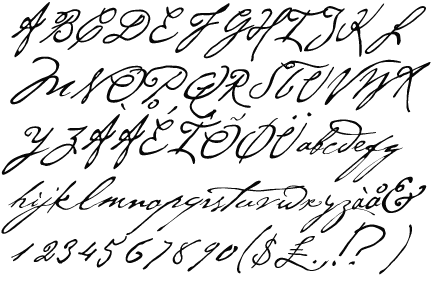 ABCDEFGHIJKL
MNOPQRSTUVWX
YZÀÅÉÎÕØÜabcdefg
hijklmnopqrstuvwxyzàå&
1234567890($£.,!?)